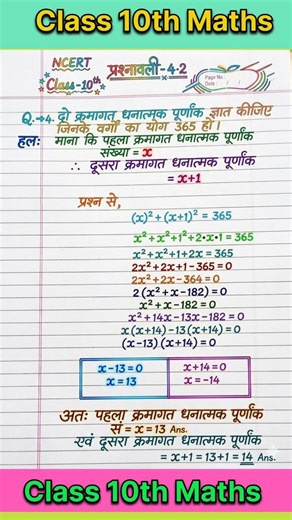 Class 10th Maths
NCERT
Class-10th
प्रश्नावली-4.2
Page No.
Date
Q.→4. दो क्रमागत धनात्मक पूर्णांक ज्ञात कीजिए
जिनके वर्गों का योग 365 हो।
हलः माना कि पहला क्रमागत धनात्मक पूर्णांक
संख्या = x
∴ दूसरा क्रमागत धनात्मक पूर्णांक
= x+1
प्रश्न से,
(x)²+(x+1)² = 365
x²+x²+1²+2•x•1 = 365
x²+x²+1+2x = 365
2x²+2x+1-365=0
2x²+2x-364=0
2(x²+x-182)=0
x²+x-182=0
x²+14x-13x-182=0
x(x+14)-13(x+14)=0
(x-13)(x+14)=0
x-13=0
x=13
x+14=0
x=-14
अतः पहला क्रमागत धनात्मक पूर्णांक
सं = x = 13 Ans.
एवं दूसरा क्रमागत धनात्मक पूर्णांक
= x+1 = 13+1 = 14 Ans.
Class 10th Maths